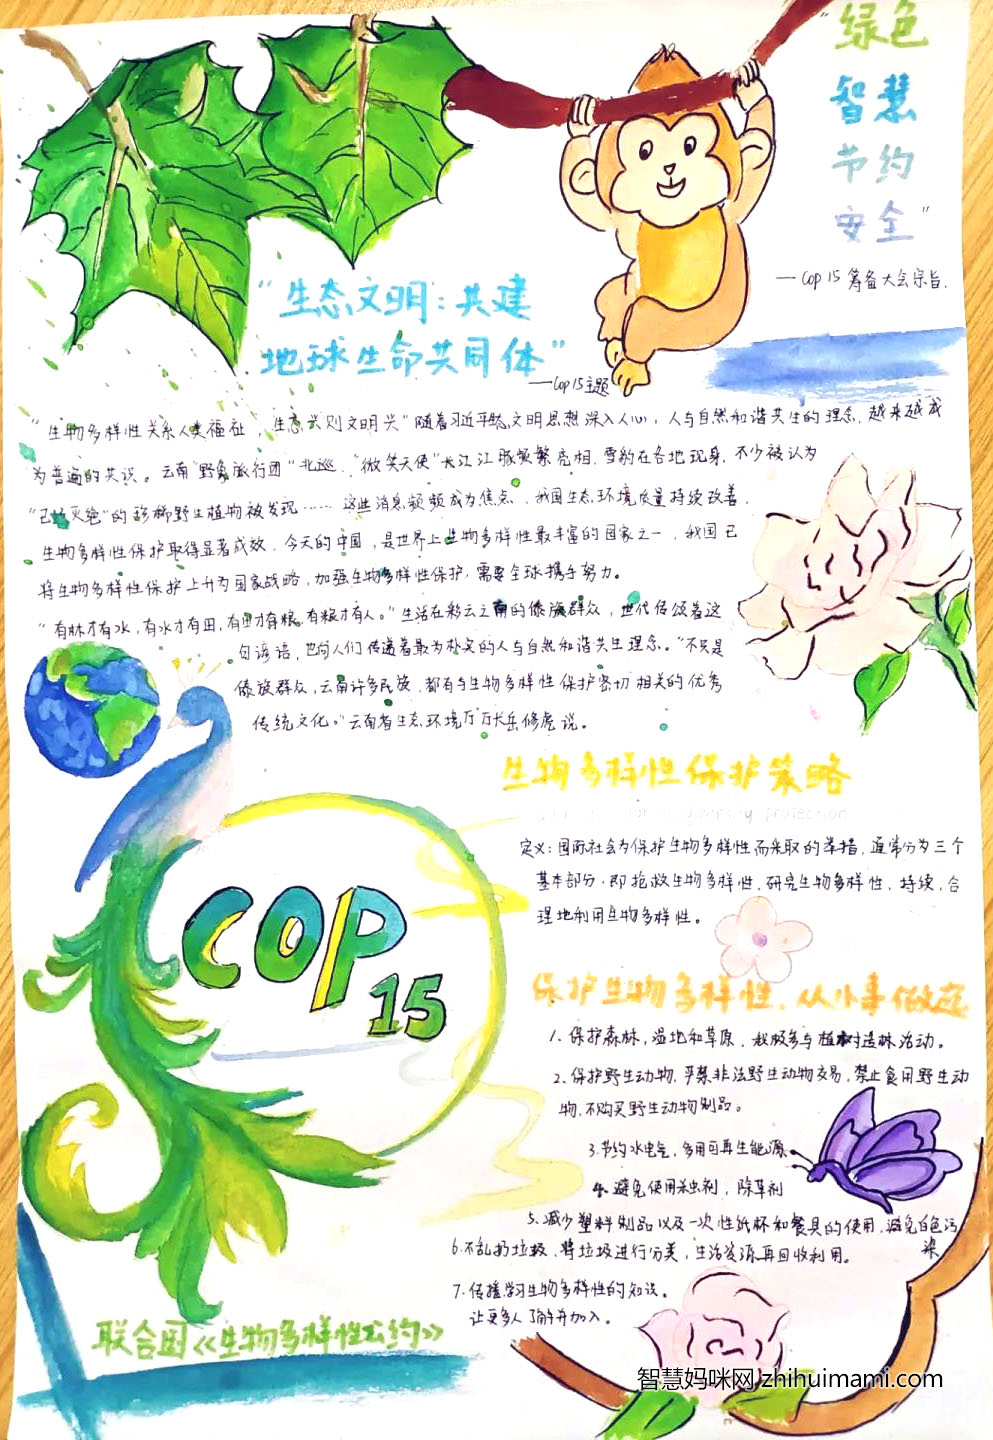 “绿色
智慧
节约
安全”
—COP15筹备大会宗旨.
“生态文明:共建
地球生命共同体”
—COP15主题
“生物多样性关系人类福祉，生态兴则文明兴”随着习近平生态文明思想深入人心，人与自然和谐共生的理念，越来越成
为普遍的共识。云南“野象旅行团”北巡，“微笑天使”长江江豚频繁亮相，雪豹在各地现身，不少被认为
“已经灭绝”的珍稀野生植物被发现……这些消息频频成为焦点，我国生态环境质量持续改善，
生物多样性保护取得显著成效。今天的中国，是世界上生物多样性最丰富的国家之一，我国已
将生物多样性保护上升为国家战略，加强生物多样性保护，需要全球携手努力。
“有林才有水，有水才有田，有田才有粮，有粮才有人。”生活在彩云之南的傣族群众，世代传颂着这
句谚语，也向人们传递着最为朴实的人与自然和谐共生理念。“不只是
傣族群众，云南许多民族，都有与生物多样性保护密切相关的优秀
传统文化。”云南省生态环境厅厅长岳修虎说。
生物多样性保护策略
biodiversity protection
定义：国际社会为保护生物多样性而采取的举措，通常分为三个
基本部分，即抢救生物多样性，研究生物多样性，持续，合
理地利用生物多样性。
COP
15
保护生物多样性，从小事做起
1、保护森林，湿地和草原，积极参与植树造林活动。
2、保护野生动物，严禁非法野生动物交易，禁止食用野生动
物，不购买野生动物制品。
3.节约水电气，多用可再生能源
4、避免使用杀虫剂，除草剂
5、减少塑料制品以及一次性纸杯和餐具的使用，避免白色污
染
6.不乱扔垃圾，将垃圾进行分类，生活资源再回收利用。
7.传播学习生物多样性的知识。
让更多人了解并加入。
联合国《生物多样性公约》
智慧妈咪网 zhihuimami.com